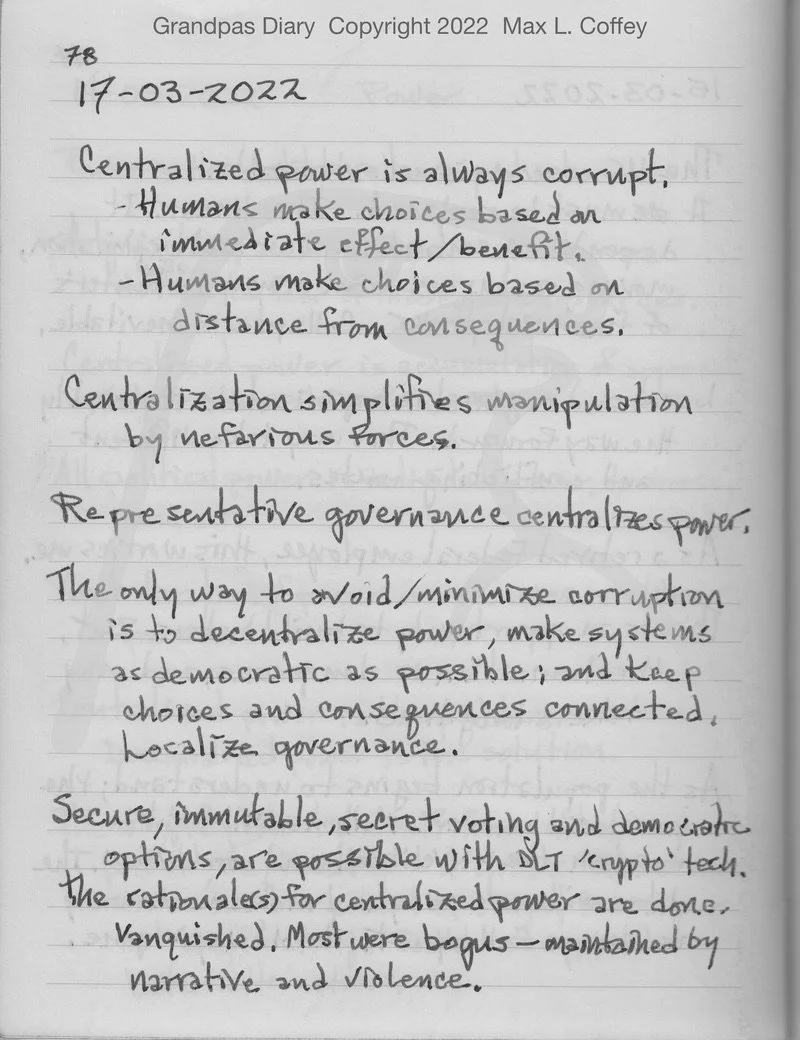 Grandpas Diary Copyright 2022 Max L. Coffey
78
17-03-2022
Centralized power is always corrupt.
- Humans make choices based on
immediate effect/benefit.
- Humans make choices based on
distance from consequences.
Centralization simplifies manipulation
by nefarious forces.
Representative governance centralizes power.
The only way to avoid/minimize corruption
is to decentralize power, make systems
as democratic as possible; and keep
choices and consequences connected.
Localize governance.
Secure, immutable, secret voting and democratic
options, are possible with DLT 'crypto' tech.
The rationale(s) for centralized power are done.
Vanquished. Most were bogus – maintained by
narrative and violence.